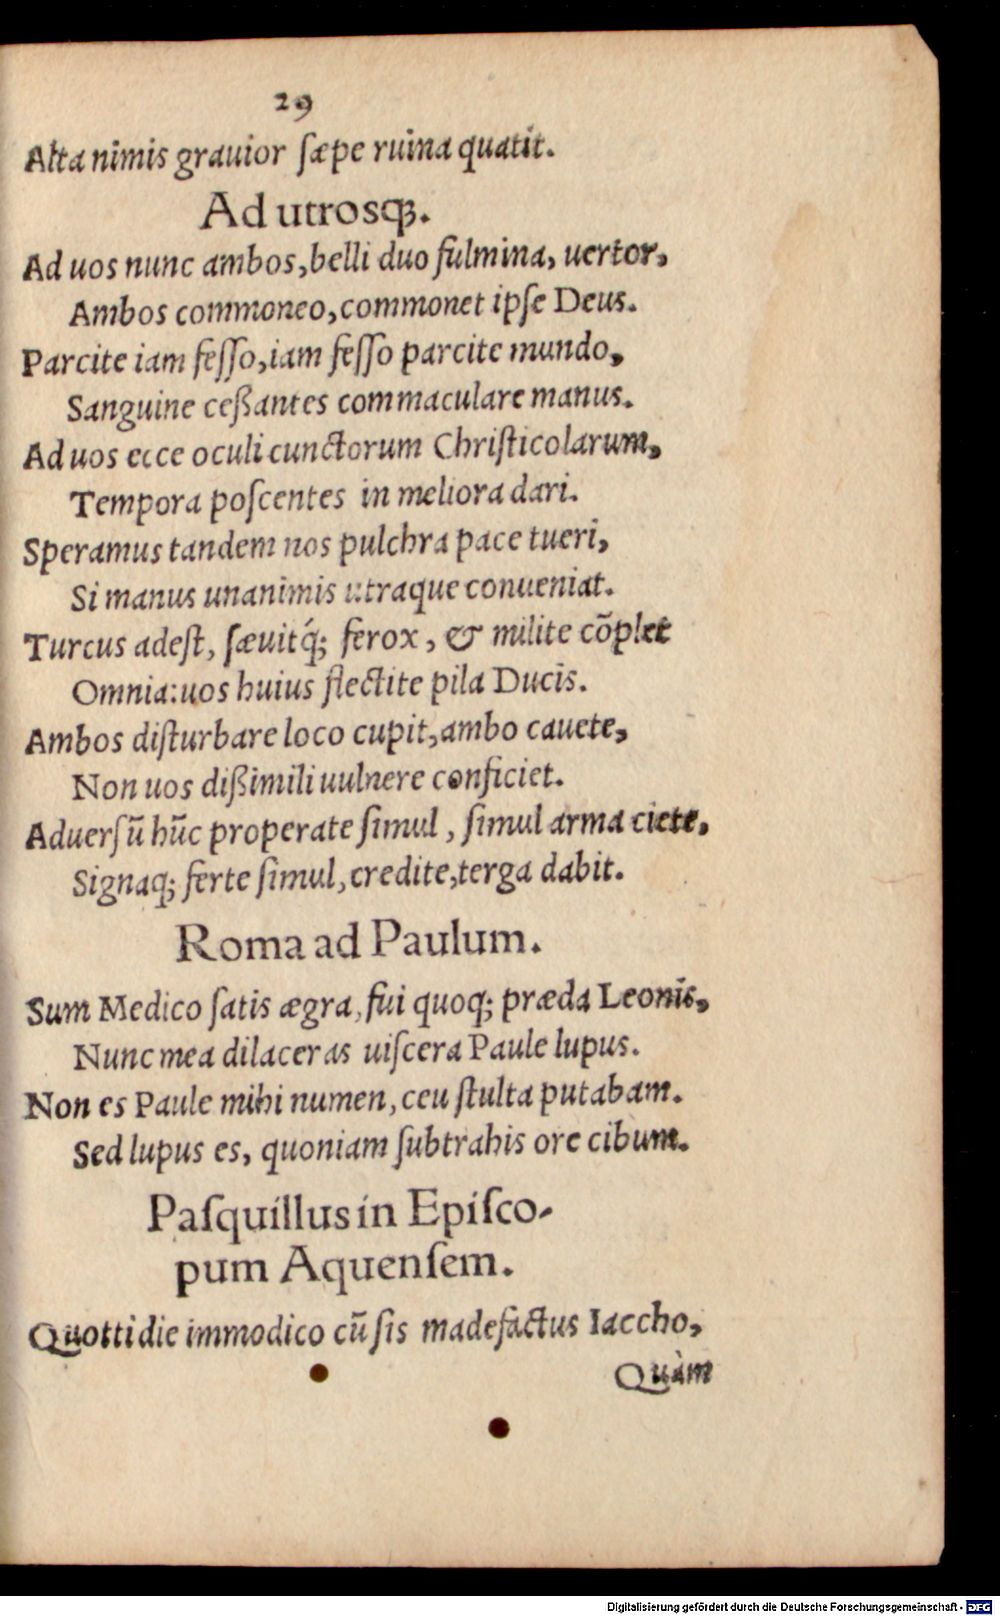 29
Alta nimis grauior ſæpe ruina quatit.
Ad utrosqꝫ.
Ad uos nunc ambos, belli duo fulmina, uertor,
Ambos commoneo, commonet ipſe Deus.
Parcite iam feſſo, iam feſſo parcite mundo,
Sanguine ceßantes commaculare manus.
Ad uos ecce oculi cunctorum Chriſticolarum,
Tempora poſcentes in meliora dari.
Speramus tandem nos pulchra pace tueri,
Si manus unanimis utraque conueniat.
Turcus adeſt, ſæuitq́; ferox, & milite cõplet
Omnia: uos huius flectite pila Ducis.
Ambos diſturbare loco cupit, ambo cauete,
Non uos dißimili uulnere conficiet.
Aduerſũ hũc properate ſimul, ſimul arma ciete,
Signaq; ferte ſimul, credite, terga dabit.
Roma ad Paulum.
Sum Medico ſatis ægra, fui quoq; præda Leonis,
Nunc mea dilaceras uiſcera Paule lupus.
Non es Paule mihi numen, ceu ſtulta putabam.
Sed lupus es, quoniam ſubtrahis ore cibum.
Paſquillus in Epiſco-
pum Aquenſem.
Quottidie immodico cũ ſis madefactus Iaccho,
Quàm
Digitalisierung gefördert durch die Deutsche Forschungsgemeinschaft - DFG